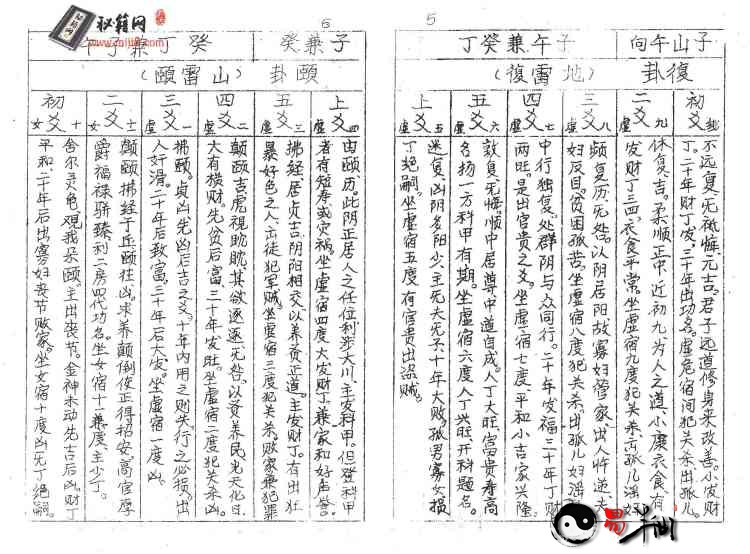 5
子山午向
子午兼癸丁
復卦
(地雷復)
初爻
不远复,无祗悔,元吉。君子远道修身来改善。小发财
丁。二十年财丁发,三十年出功名。虚危宿间犯关杀,出孤儿。
二爻
九虚
休复吉。柔顺正中,近初九为人之道,小康衣食有
发财丁三四,衣食平常。坐虚宿九度犯关杀,孤儿淫妇
三爻
八虚
频复厉无咎。以阴居阳故寡妇管家,出人忤逆夫
妇反目。贫困孤苦。坐虚宿八度犯关杀,出孤儿妇淫
四爻
七虚
中行独复,处群阴与众同行。二十年发福三十年丁财
两旺。是出官贵之爻。坐虚宿七度,平和小吉家兴隆。
五爻
六虚
敦复无悔,顺中居尊中道自成。人丁大旺,富贵寿高
名扬一方科甲有期。坐虚宿六度,人丁兴旺,开科题名。
上爻
五虚
迷复,凶。阴多阳少,主死夭无子,十年大败,孤男寡女损
丁绝嗣。坐虚宿五度,有官贵出盗贼。
6
子兼癸
癸丁兼子午
頤卦
(山雷頤)
上爻
四虚
由颐厉。此阴正居人之任位利涉大川,主发科甲。但登科甲
者有短寿或灾祸,坐虚宿四度大发财丁兼家和好声誉。
五爻
三虚
拂经居贞吉,阴阳相交以养贤正道。主发财丁。有出壮
暴好色之人,亡徒犯军贼。坐虚宿三度犯关杀。败家兼犯罪
四爻
二虚
颠颐吉,虎视眈眈其欲逐逐无咎,以贤养民光天化日
大有横财。先贫后富,三十年发旺。坐虚宿二度犯关杀凶
三爻
一虚
拂颐。贞凶,先凶后吉之爻。十年内用之则失,行之必损。出
人奸滑。二十年后致富三十年后大发。坐虚宿一度凶。
二爻
十一女
颠颐拂经于丘颐往凶。求养颠倒后正得招安。高官厚
爵福禄骈臻,利二房四代功名。坐女宿十一兼度,主少丁。
初爻
十女
舍尔灵龟观我朵颐,主出丧节。金神木动先吉后凶。财丁
平和。二十年后出寡妇丧节败家。坐女宿十度凶无丁绝嗣。
秘籍网